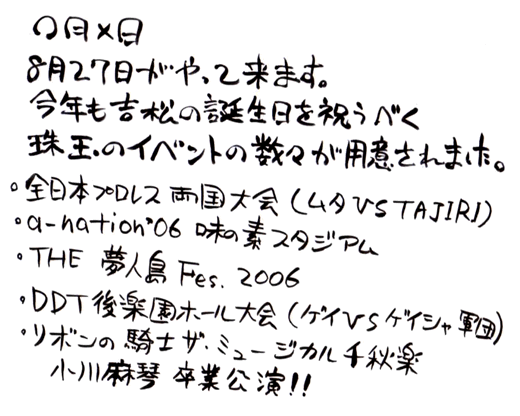 〇月×日
8月27日がやって来ます。
今年も吉松の誕生日を祝うべく
珠玉のイベントの数々が用意されました。
・全日本プロレス両国大会(ムタVSTAJIRI)
・a-nation'06 味の素スタジアム
・THE 夢人島 Fes. 2006
・DDT後楽園ホール大会(ゲイVSゲイシャ軍団)
・リボンの騎士ザ・ミュージカル千秋楽
小川麻琴 卒業公演!!